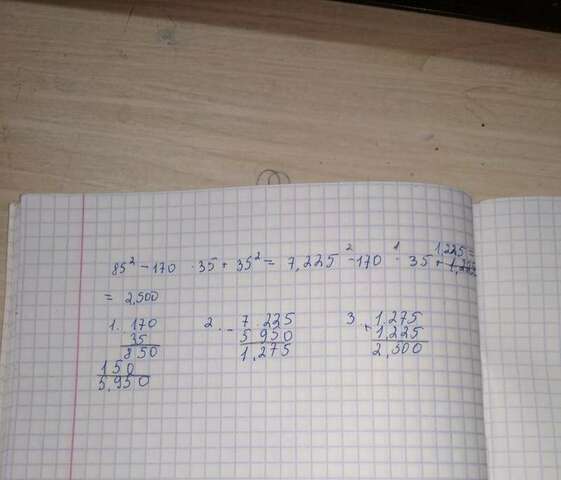 85² − 170 · 35 + 35² = 7,225 − 170 · 35 + 1,225 =
= 2,500
1. 170
35
850
150
5,950
2. − 7 225
5 950
1,275
3 + 1,275
1,225
2,500